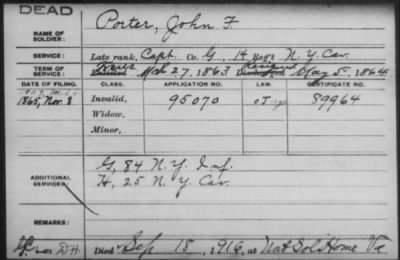 DEAD
NAME OF SOLDIER: Porter, John F.
SERVICE: Late rank, Capt. Co. G, 14 Reg't N.Y. Cav.
TERM OF SERVICE: Enlisted Mch 27, 1863 Discharged May 5, 1864
DATE OF FILING. CLASS. APPLICATION NO. LAW. CERTIFICATE NO.
1865, Nov. 8 Invalid, 95070 89964
Widow,
Minor,
ADDITIONAL SERVICES: G, 84 N.Y. Inf.
H, 25 N.Y. Cav.
REMARKS:
Died Sep 18, 1916, at Nat Sol Home Va